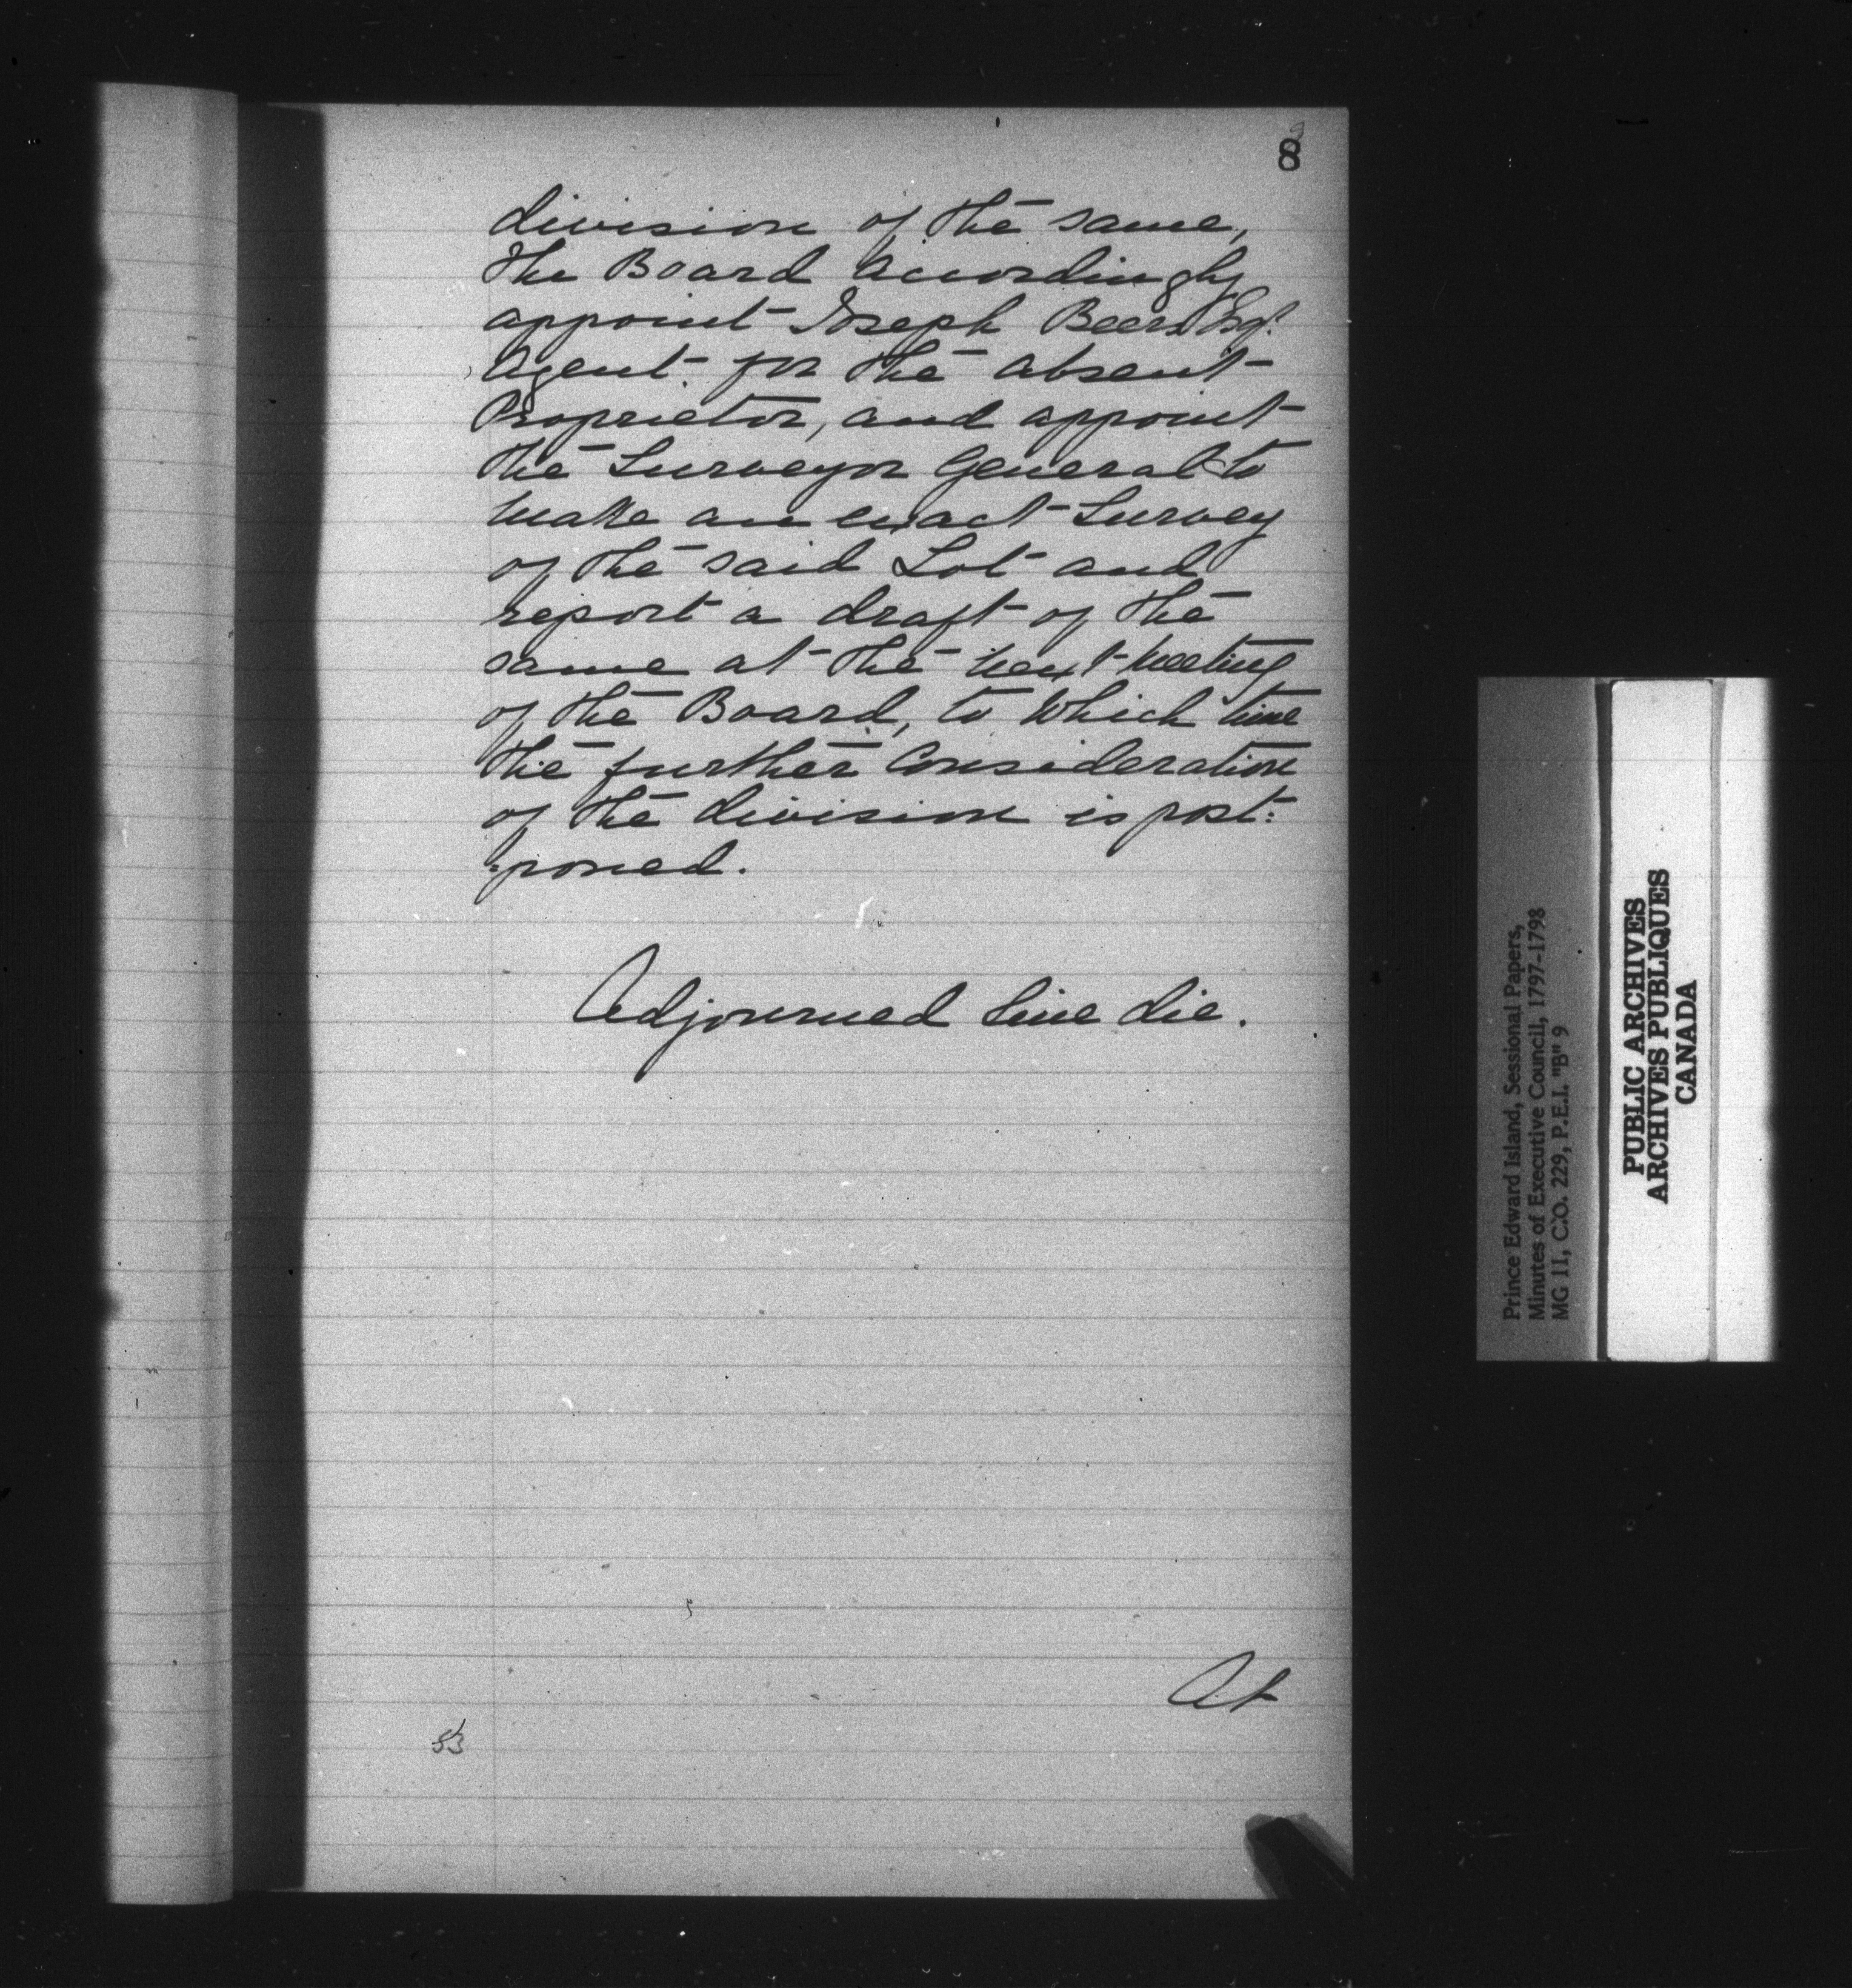 8
division of the same,
the Board accordingly
appoint Joseph Beers Esqr.
Agent for the absent
Proprietor, and appoint
the Surveyor General to
make an exact Survey
of the said Lot and
report a draft of the
same at the next meeting
of the Board, to which time
the further Consideration
of the division is post:
:poned.
Adjourned Sine die.
At
53
Prince Edward Island, Sessional Papers,
Minutes of Executive Council, 1797-1798
MG 11, C.O. 229, P.E.I. "B" 9
PUBLIC ARCHIVES
ARCHIVES PUBLIQUES
CANADA